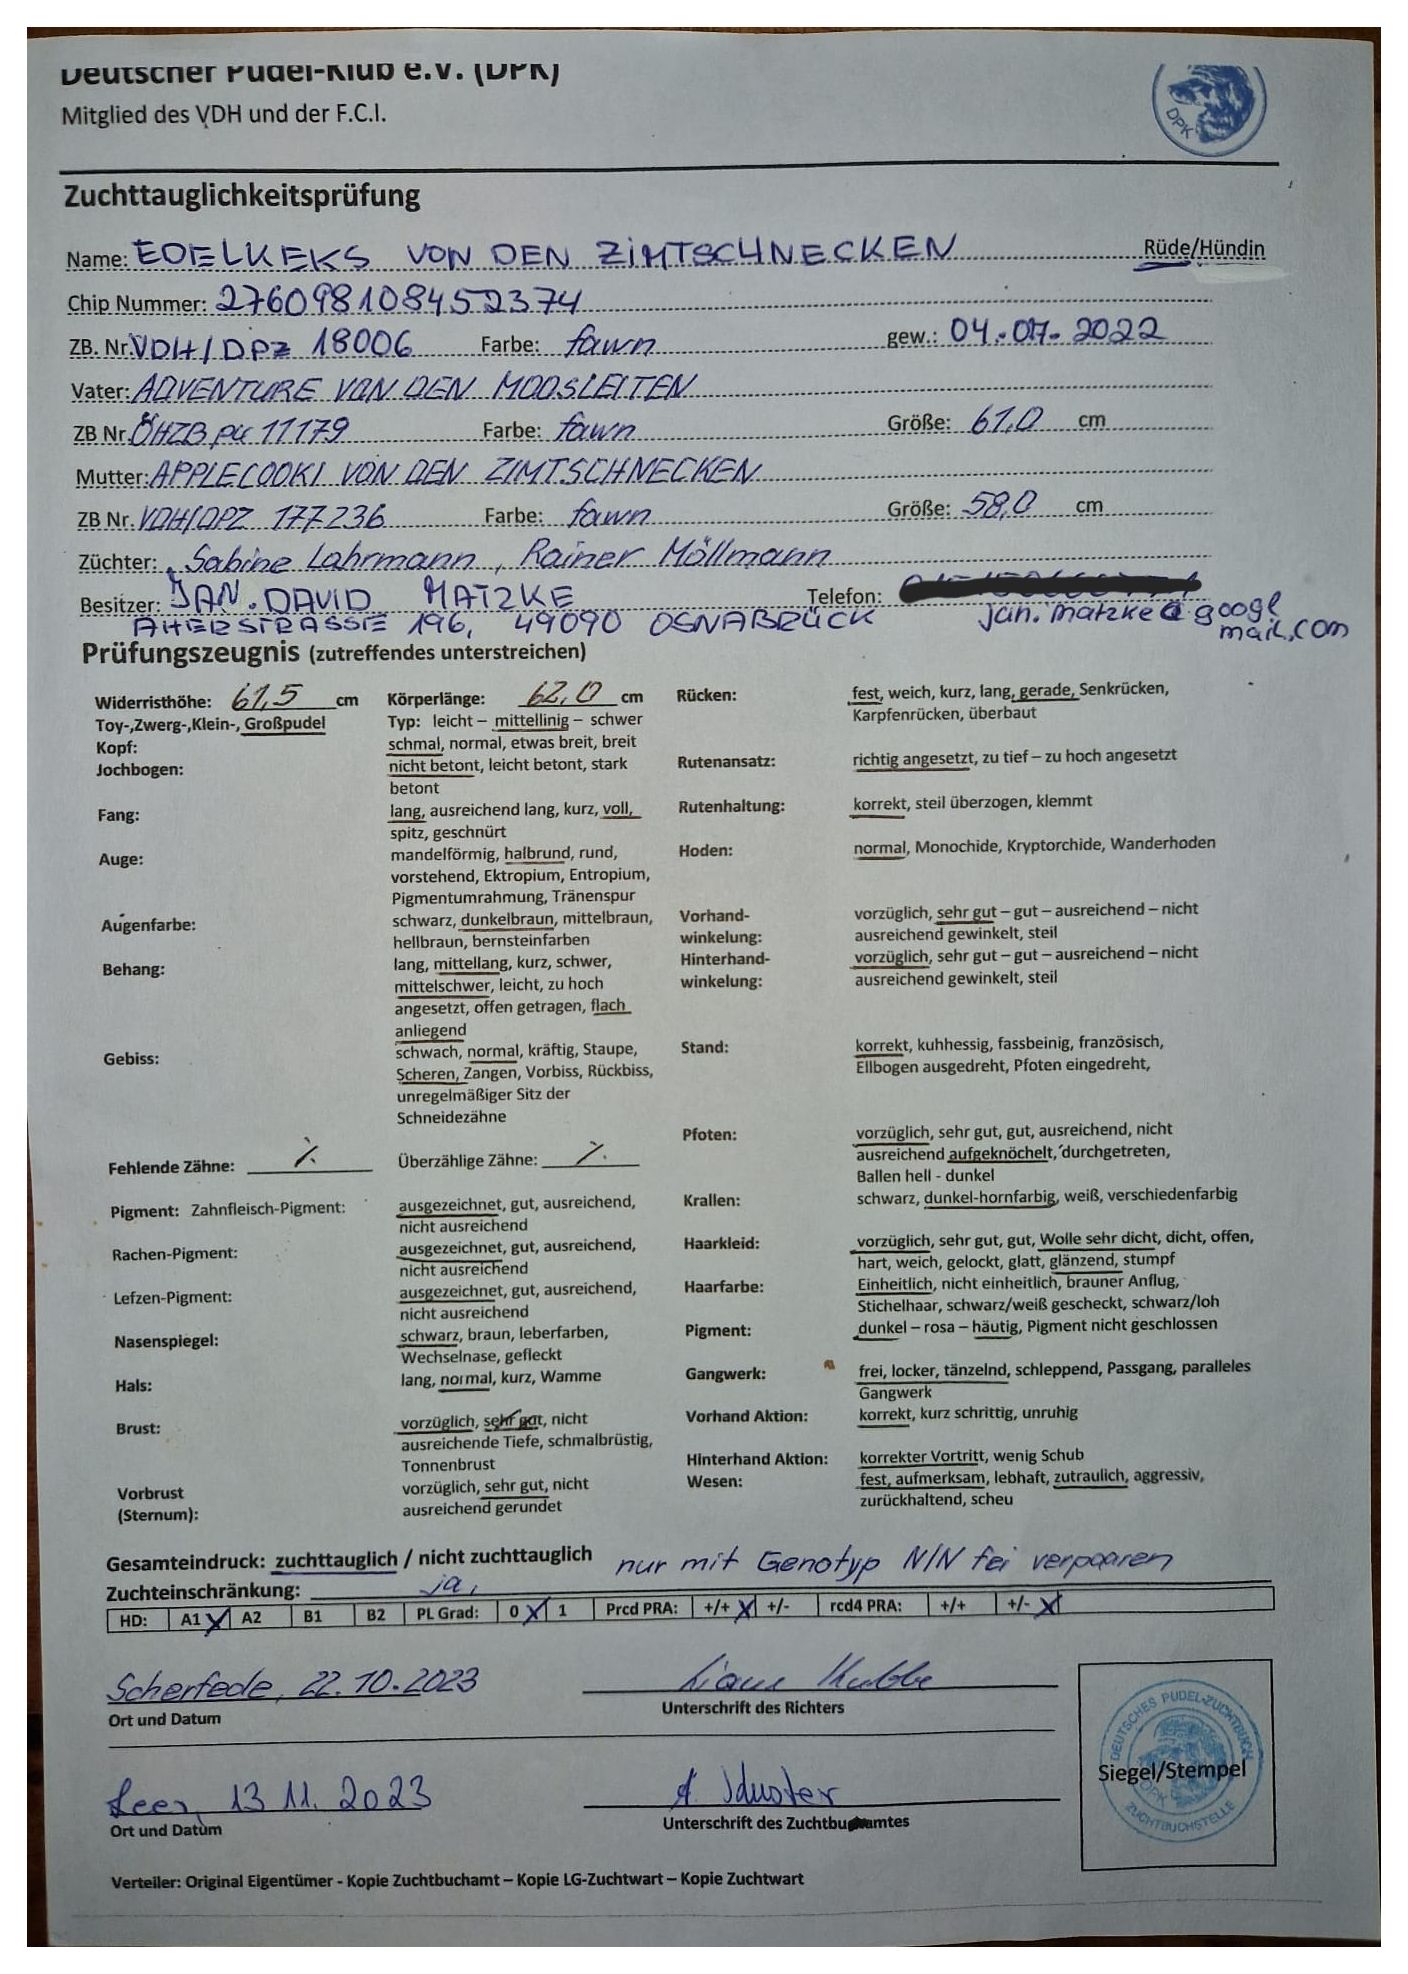 Deutscher Pudel-Klub e.V. (DPK)
Mitglied des VDH und der F.C.I.
DPK
Zuchttauglichkeitsprüfung
Name: EDELKEKS VON DEN ZIMTSCHNECKEN Rüde/Hündin
Chip Nummer: 276098108452374
ZB. Nr. VDH/DPZ 18006 Farbe: fawn gew.: 04.07.2022
Vater: ADVENTURE VON DEN MOOSLEITEN
ZB Nr. ÖHZB PU 11179 Farbe: fawn Größe: 61,0 cm
Mutter: APPLECOOKI VON DEN ZIMTSCHNECKEN
ZB Nr. VDH/DPZ 177236 Farbe: fawn Größe: 58,0 cm
Züchter: Sabine Lahrmann, Rainer Möllmann
Besitzer: JAN-DAVID MATZKE Telefon:
ATTERSTRASSE 196, 49090 OSNABRÜCK jan.matzke@googl
mail.com
Prüfungszeugnis (zutreffendes unterstreichen)
Widerristhöhe: 61,5 cm Körperlänge: 62,0 cm Rücken: fest, weich, kurz, lang, gerade, Senkrücken,
Toy-,Zwerg-,Klein-, Großpudel Typ: leicht – mittellinig – schwer Karpfenrücken, überbaut
Kopf: schmal, normal, etwas breit, breit
Jochbogen: nicht betont, leicht betont, stark Rutenansatz: richtig angesetzt, zu tief – zu hoch angesetzt
betont
Fang: lang, ausreichend lang, kurz, voll, Rutenhaltung: korrekt, steil überzogen, klemmt
spitz, geschnürt
Auge: mandelförmig, halbrund, rund, Hoden: normal, Monochide, Kryptorchide, Wanderhoden
vorstehend, Ektropium, Entropium,
Pigmentumrahmung, Tränenspur
Augenfarbe: schwarz, dunkelbraun, mittelbraun, Vorhand- vorzüglich, sehr gut – gut – ausreichend – nicht
hellbraun, bernsteinfarben winkelung: ausreichend gewinkelt, steil
Behang: lang, mittellang, kurz, schwer, Hinterhand- vorzüglich, sehr gut – gut – ausreichend – nicht
mittelschwer, leicht, zu hoch winkelung: ausreichend gewinkelt, steil
angesetzt, offen getragen, flach
anliegend
Gebiss: schwach, normal, kräftig, Staupe, Stand: korrekt, kuhhessig, fassbeinig, französisch,
Scheren, Zangen, Vorbiss, Rückbiss, Ellbogen ausgedreht, Pfoten eingedreht,
unregelmäßiger Sitz der
Schneidezähne
Pfoten: vorzüglich, sehr gut, gut, ausreichend, nicht
Fehlende Zähne: ./. Überzählige Zähne: ./. ausreichend aufgeknöchelt, durchgetreten,
Ballen hell - dunkel
Pigment: Zahnfleisch-Pigment: ausgezeichnet, gut, ausreichend, Krallen: schwarz, dunkel-hornfarbig, weiß, verschiedenfarbig
nicht ausreichend
Rachen-Pigment: ausgezeichnet, gut, ausreichend, Haarkleid: vorzüglich, sehr gut, gut, Wolle sehr dicht, dicht, offen,
nicht ausreichend hart, weich, gelockt, glatt, glänzend, stumpf
Lefzen-Pigment: ausgezeichnet, gut, ausreichend, Haarfarbe: Einheitlich, nicht einheitlich, brauner Anflug,
nicht ausreichend Stichelhaar, schwarz/weiß gescheckt, schwarz/loh
Nasenspiegel: schwarz, braun, leberfarben, Pigment: dunkel – rosa – häutig, Pigment nicht geschlossen
Wechselnase, gefleckt
Hals: lang, normal, kurz, Wamme Gangwerk: frei, locker, tänzelnd, schleppend, Passgang, paralleles
Gangwerk
Brust: vorzüglich, sehr gut, nicht Vorhand Aktion: korrekt, kurz schrittig, unruhig
ausreichende Tiefe, schmalbrüstig,
Tonnenbrust Hinterhand Aktion: korrekter Vortritt, wenig Schub
Vorbrust vorzüglich, sehr gut, nicht Wesen: fest, aufmerksam, lebhaft, zutraulich, aggressiv,
(Sternum): ausreichend gerundet zurückhaltend, scheu
Gesamteindruck: zuchttauglich / nicht zuchttauglich nur mit Genotyp N/N fei verpaaren
Zuchteinschränkung: ja,
HD: A1 X A2 B1 B2 PL Grad: 0 X 1 Prcd PRA: +/+ X +/- rcd4 PRA: +/+ +/- X
Scherfede, 22.10.2023
Ort und Datum Unterschrift des Richters
Leer, 13.11.2023 A. Schuster
Ort und Datum Unterschrift des Zuchtbuchamtes
DEUTSCHES PUDEL-ZUCHTBUCH
Siegel/Stempel
DPK
ZUCHTBUCHSTELLE
Verteiler: Original Eigentümer - Kopie Zuchtbuchamt – Kopie LG-Zuchtwart – Kopie Zuchtwart